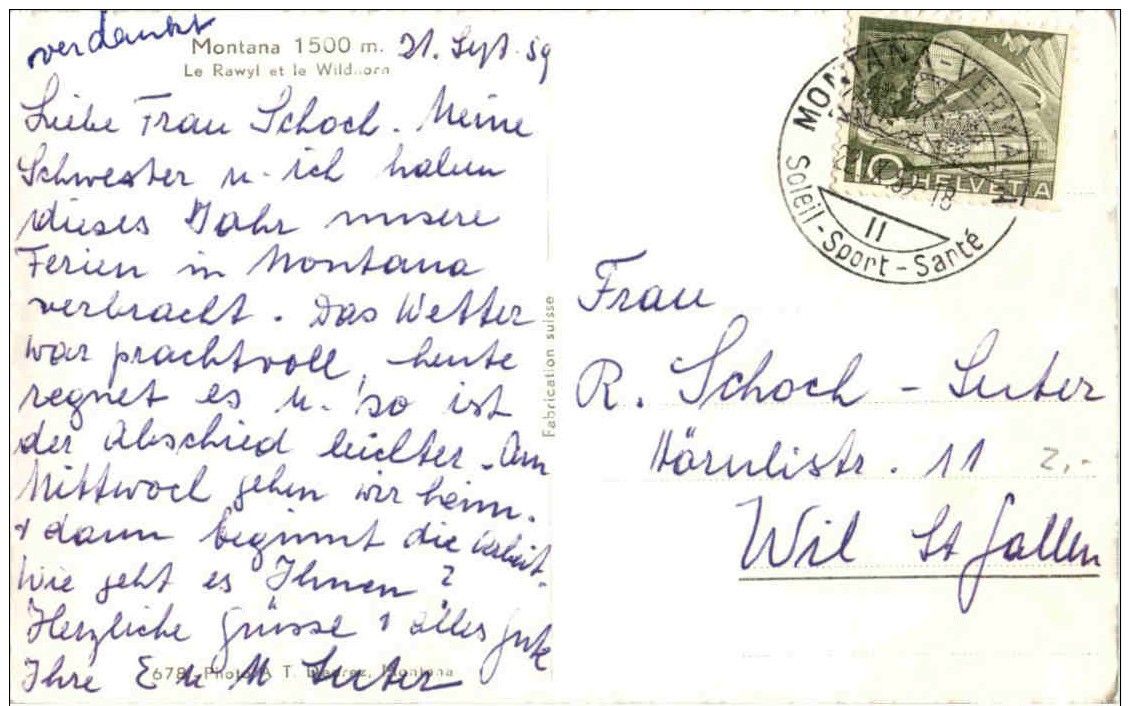 verdankt
Montana 1500 m. 21. Sept. 59
Le Rawyl et le Wildhorn
Liebe Frau Schoch. Meine
Schwester u. ich haben
dieses Jahr unsere
Ferien in Montana
verbracht. Das Wetter
war prachtvoll, heute
regnet es u. so ist
der Abschied leichter. Am
Mittwoch gehen wir heim.
+ dann beginnt die Arbeit.
Wie geht es Ihnen?
Herzliche Grüsse + alles Gute
Ihre E u M Suter
Photo T. Montana
Fabrication suisse
MONTANA-VERMALA
Soleil-Sport-Santé
II
10 HELVETIA
Frau
R. Schoch-Suter
Hörnlistr. 11
2.-
Wil St Gallen